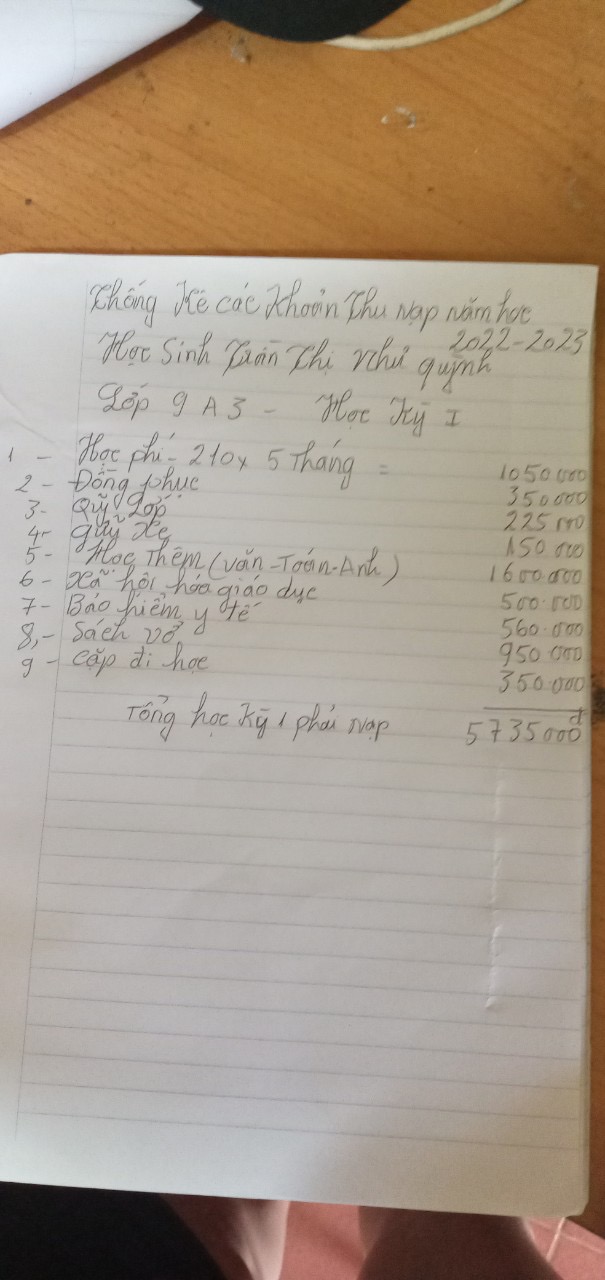 Thống Kê các Khoản Thu Nạp năm học
2022-2023
Học Sinh Trần Thị Như quỳnh
Lớp 9 A 3 - Học Kỳ I
1 - Học phí - 210 x 5 Tháng = 1050 000
2 - Đồng phục 350 000
3 - Quỹ Lớp 225 000
4 - quỹ xe 150 000
5 - Học Thêm (văn-Toán-Anh) 1600 000
6 - xã hội hóa giáo dục 500.000
7 - Bảo hiểm y tế 560.000
8,- Sách vở 950 000
9 - cặp đi học 350.000
Tổng học kỳ 1 phải nạp 5735000đ